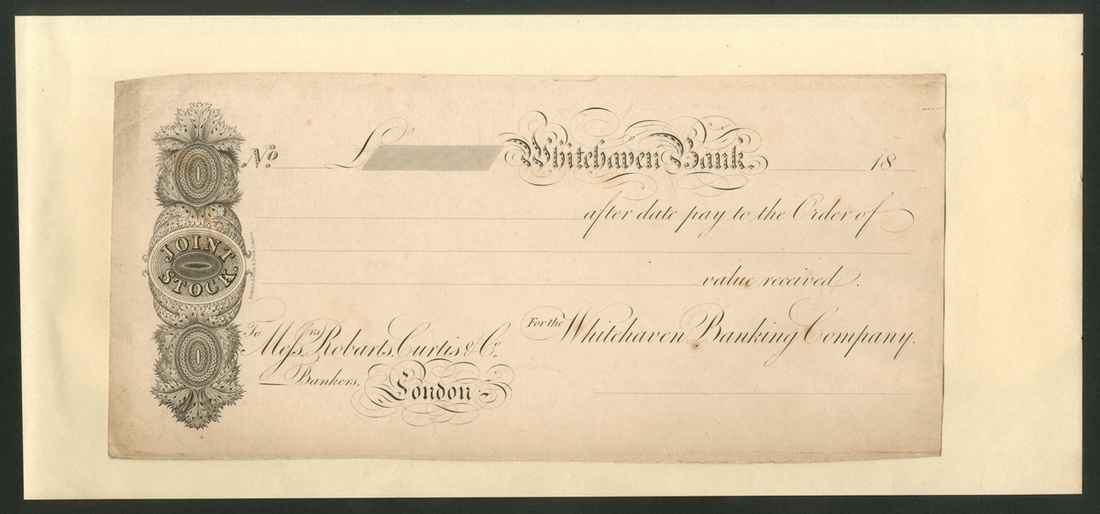 No £ Whitehaven Bank. 18
after date pay to the Order of
JOINT STOCK.
value received.
To Messrs. Robarts, Curtis & Co. For the Whitehaven Banking Company.
Bankers, London